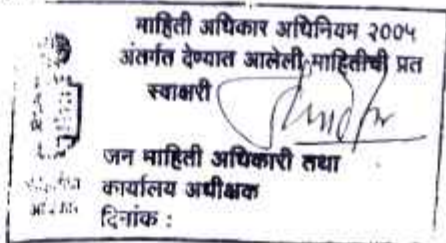 माहिती अधिकार अधिनियम २००५
अंतर्गत देण्यात आलेली माहितीची प्रत
स्वाक्षरी
जन माहिती अधिकारी तथा
कार्यालय अधीक्षक
दिनांक :